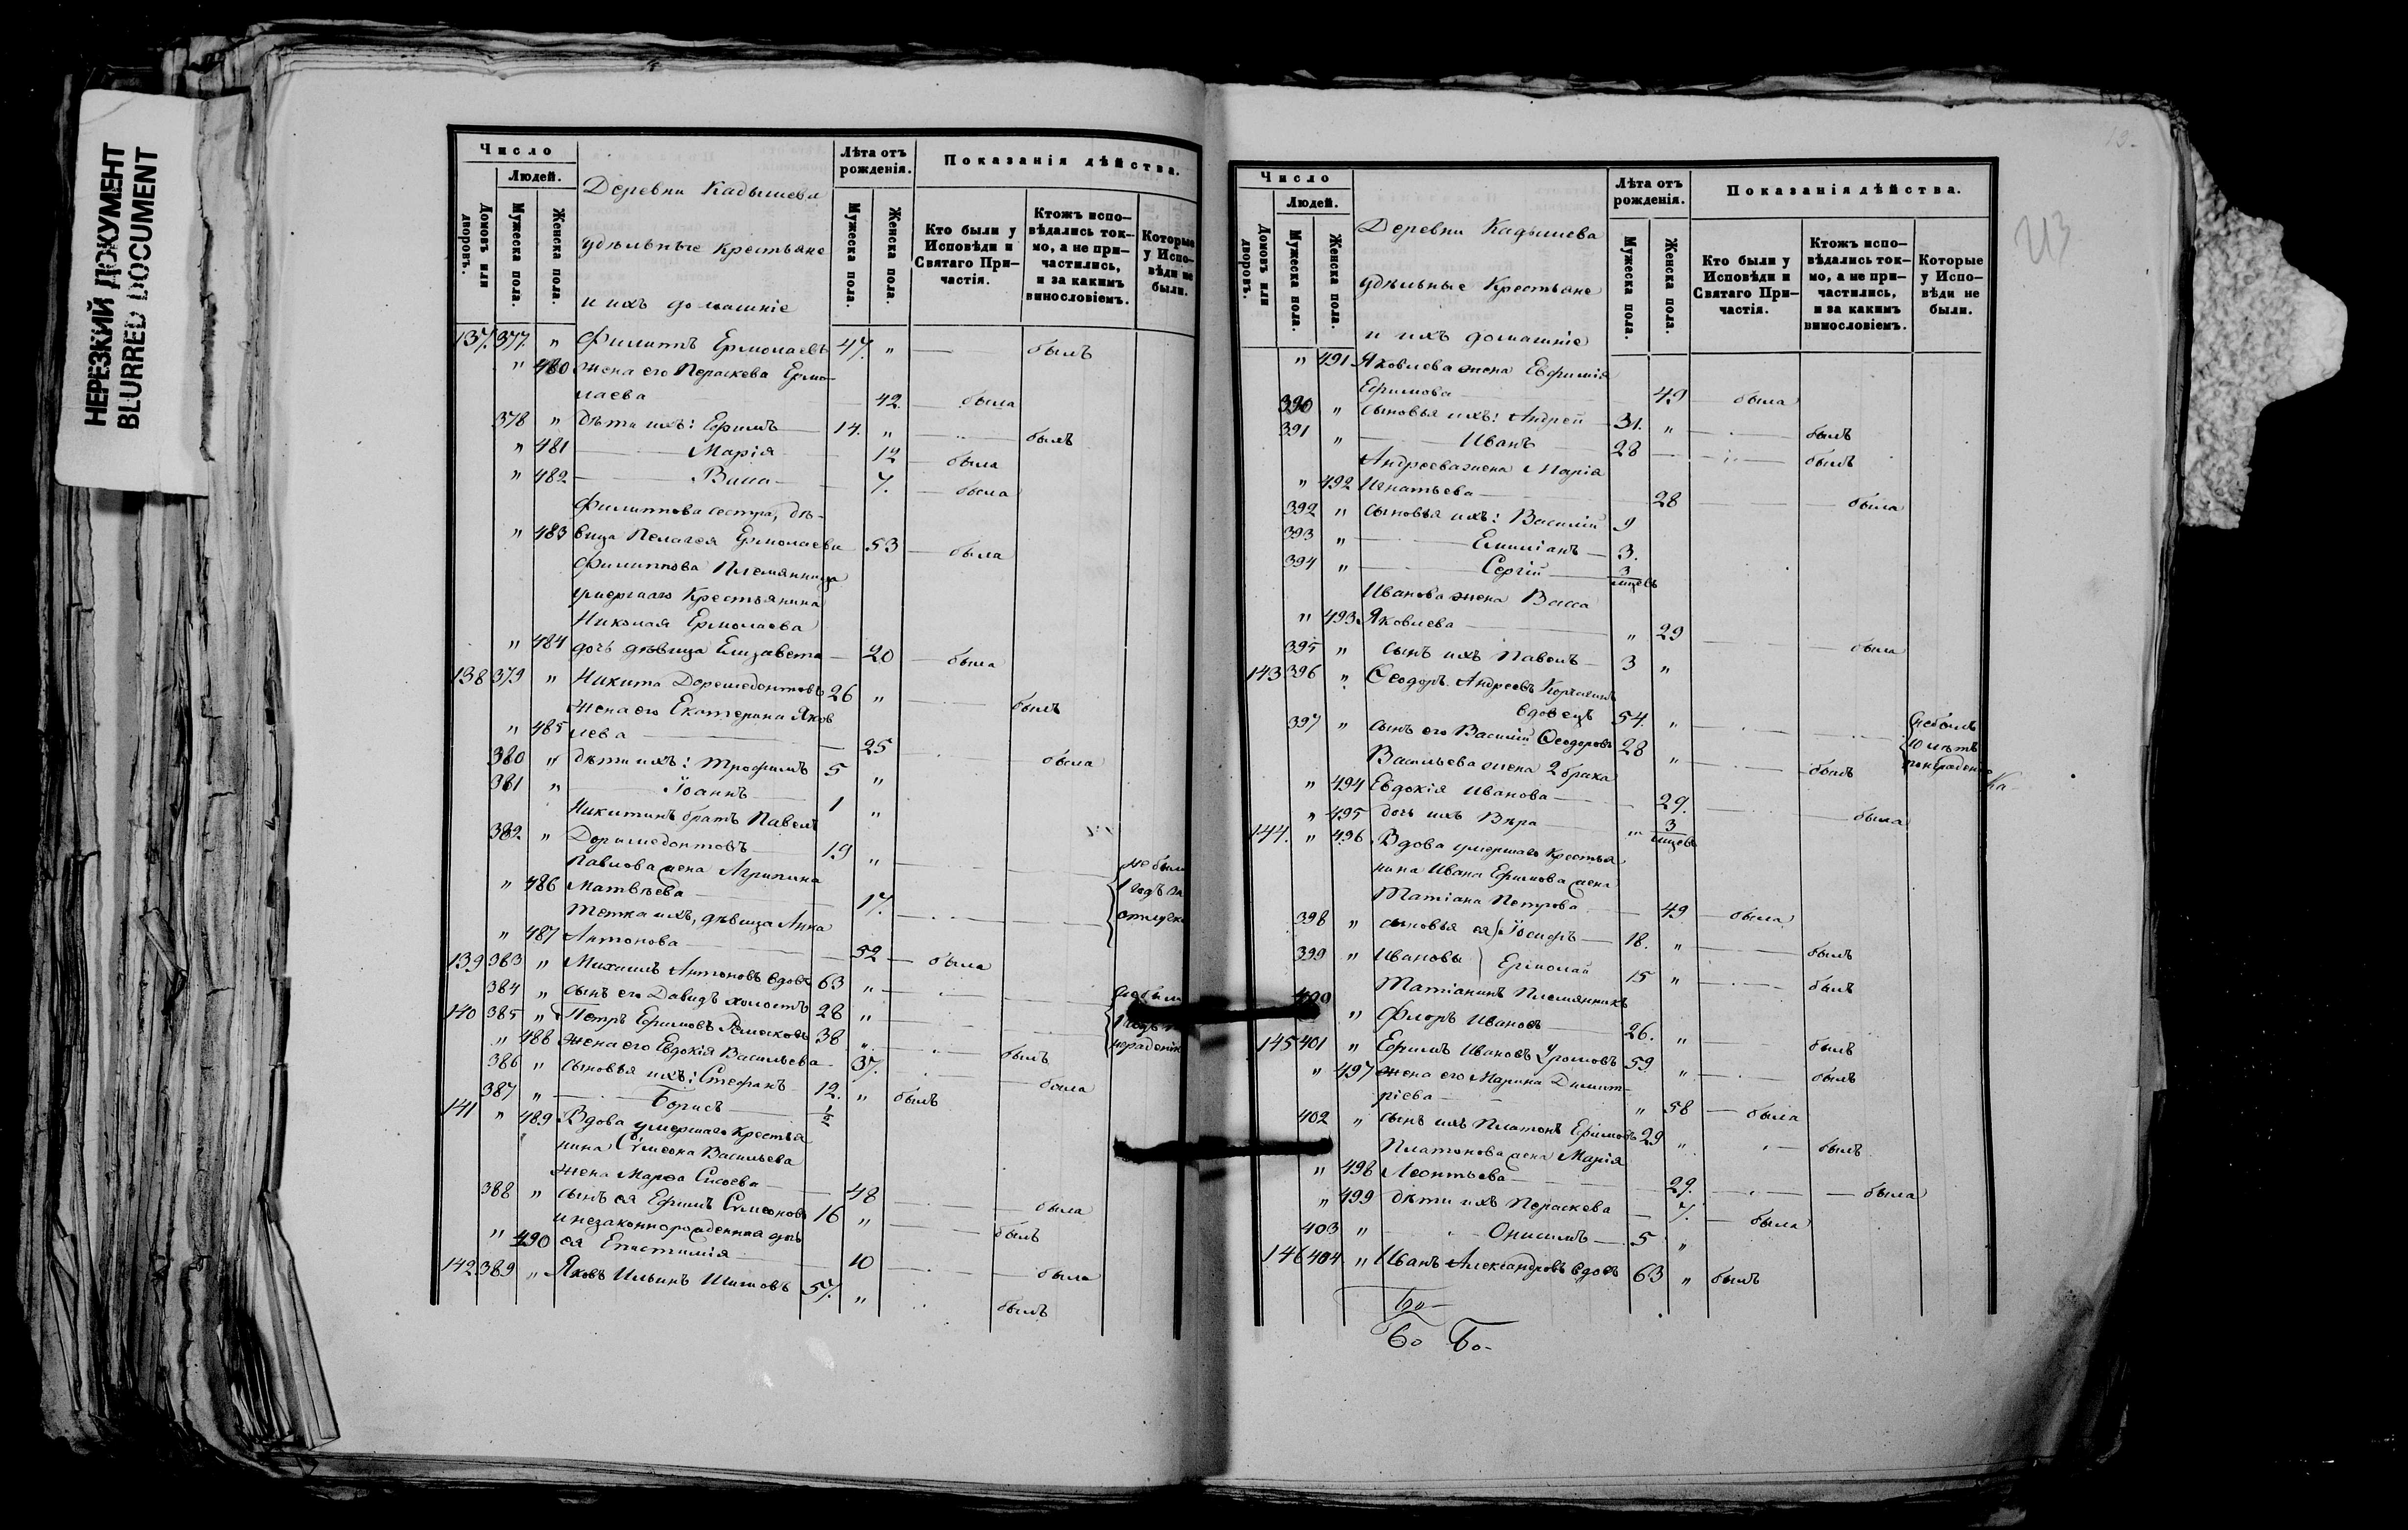 НЕРЕЗКИЙ ДОКУМЕНТ
BLURRED DOCUMENT
Число
Людей.
Домовъ или дворовъ.
Мужеска пола.
Женска пола.
Деревни Кадышева
удѣльные Крестьяне
и ихъ домашніе
Лѣта отъ рожденія.
Мужеска пола.
Женска пола.
Показанія дѣйства.
Кто были у Исповѣди и Святаго Причастія.
Ктожъ исповѣдались токмо, а не причастились, и за какимъ винословіемъ.
Которые у Исповѣди не были.
137. 377. " Филиппъ Ермолаевъ 47. " — былъ
" 480 жена его Параскева Ермо-
лаева 42. — была
378 " дѣти ихъ: Ефимъ — 14. " былъ
" 481 — Марія — 12 — была
" 482 — — 7. — была
Филиппова сестра, дѣ-
" 483 вица Пелагея Ермолаева 53 — была
Филиппова Племянница
умершаго Крестьянина
Николая Ермолаева
" 484 дочь дѣвица Елизавета — 20 — была
138 379 " Никита Доримедонтовъ 26 " былъ
жена его Екатерина Яков
" 485 лева — 25 была
380 " дѣти ихъ: Трофимъ 5 "
381 " — Іоаннъ 1 "
Никитинъ братъ Павелъ
382 " Доримедонтовъ 19 "
Павлова жена Агрипина не были
" 486 Матвѣева — 17. 1 годъ
Тетка ихъ, дѣвица Анна
" 487 Антонова — 52 — была
139 383 " Михаилъ Антоновъ вдовъ 63 "
384 " сынъ его Давидъ холостъ 28 " не были
140 385 " Петръ Ефимовъ 38 " былъ
" 488 жена его Евдокія Васильева 37. была
386 " сыновья ихъ: Стефанъ 12. " былъ
387 " — Борисъ —
141 " 489 Вдова умершаго крестья
нина Сѵмеона Васильева
жена Марѳа Сысоева — 48 была
388 " сынъ ея Ефимъ Сѵмеоновъ 16 " былъ
и незаконнорожденная дочь
" 490 ея Епистимія — 10 была
142 389 " Яковъ Ильинъ Шитовъ 57. " былъ
Число
Людей.
Домовъ или дворовъ.
Мужеска пола.
Женска пола.
Деревни Кадышева
удѣльные Крестьяне
и ихъ домашніе
Лѣта отъ рожденія.
Мужеска пола.
Женска пола.
Показанія дѣйства.
Кто были у Исповѣди и Святаго Причастія.
Ктожъ исповѣдались токмо, а не причастились, и за какимъ винословіемъ.
Которые у Исповѣди не были.
" 491 Яковлева жена Евфимія
Ефимова 49 — была
390 " сыновья ихъ: Андрей — 31. " былъ
391 " — Иванъ 28 былъ
Андреева жена Марія
" 492 Игнатьева — 28 была
392 " сыновья ихъ: Василій 9
393 " — Емиліанъ — 3.
394 " — Сергій 3 мцевъ
Иванова жена Васса
" 493 Яковлева — " 29 была
395 " сынъ ихъ Павелъ — 3 "
143 396 " Ѳеодоръ Андреевъ
вдовецъ 54. " не были
397 " сынъ его Василій Ѳеодоровъ 28 " былъ 10 лѣтъ
Васильева жена 2 брака
" 494 Евдокія Иванова — 29. была
" 495 дочь ихъ Вѣра " 3 мцев
144. " 496 Вдова умершаго крестья
нина Ивана Ефимова жена
Татіана Петрова 49 — была
398 " сыновья ея Іосифъ — 18. " былъ
399 " Ивановы Ермолай 15 " былъ
Татіанинъ Племянникъ
400 " Флоръ Ивановъ 26. " былъ
145 401 " Ефимъ Ивановъ 59 " былъ
" 497 жена его Марина Димит-
ріева " 58 — была
402 " сынъ ихъ Платонъ Ефимовъ 29 " былъ
Платонова жена Марія
" 498 Леонтьева — 29. — была
" 499 дѣти ихъ Параскева — 7. — была
403 " Онисимъ — 5 "
146 404 " Иванъ Александровъ вдовъ 63 " былъ